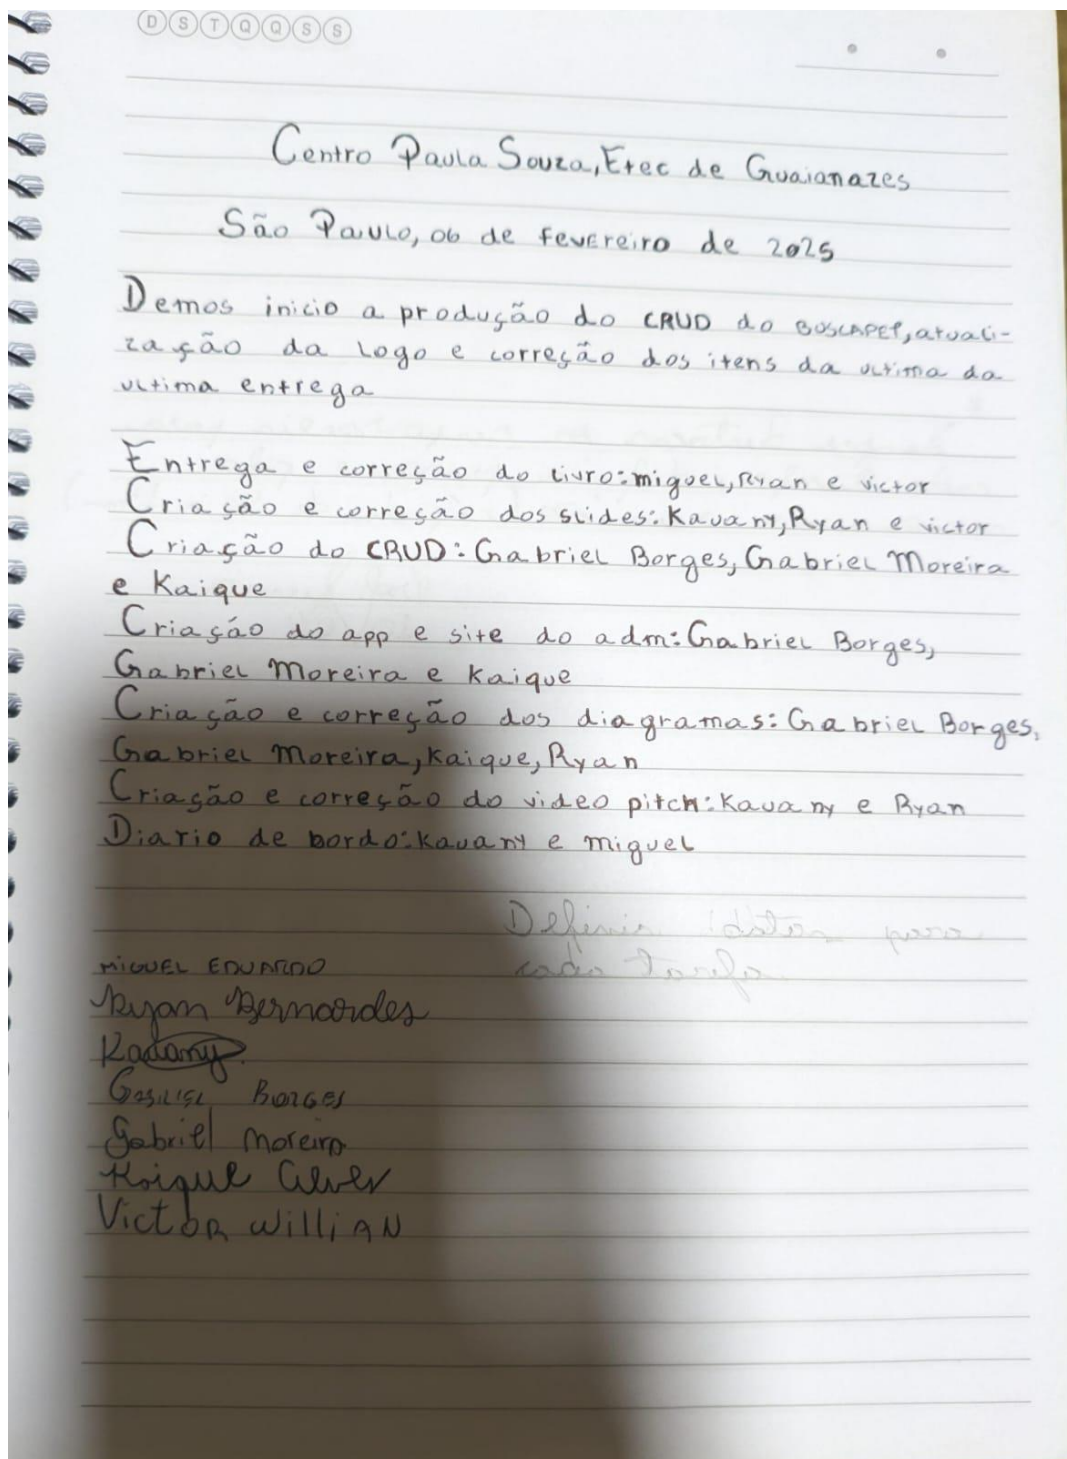 D S T Q Q S S
Centro Paula Souza, Etec de Guaianazes
São Paulo, 06 de fevereiro de 2025
Demos inicio a produção do CRUD do BUSCAPET, atuali-
zação da logo e correção dos itens da ultima da
ultima entrega
Entrega e correção do livro: miguel, Ryan e victor
Criação e correção dos slides: Kauany, Ryan e victor
Criação do CRUD: Gabriel Borges, Gabriel Moreira
e Kaique
Criação do app e site do adm: Gabriel Borges,
Gabriel Moreira e Kaique
Criação e correção dos diagramas: Gabriel Borges,
Gabriel Moreira, Kaique, Ryan
Criação e correção do video pitch: Kauany e Ryan
Diario de bordo: Kauany e miguel
Definir datas para
cada tarefa
MIGUEL EDUARDO
Ryan Bernardes
Kauany
Gabriel Borges
Gabriel Moreira
Kaique Alves
Victor Willian